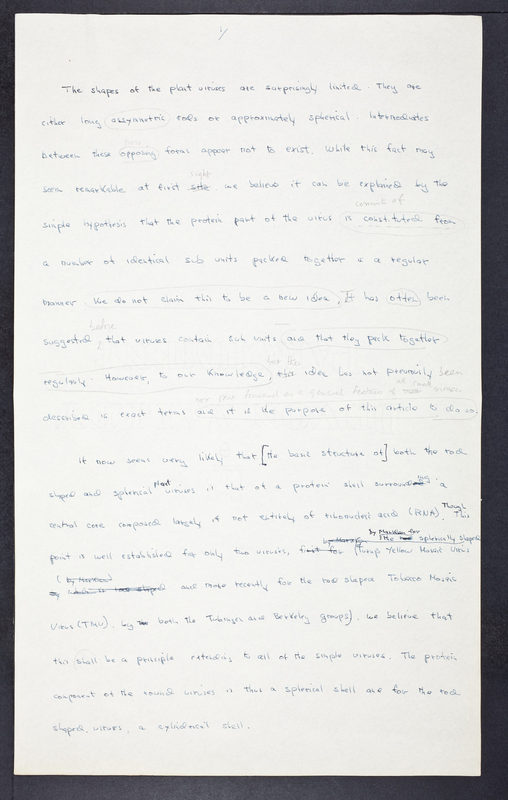 1/
The shapes of the plant viruses are surprisingly limited. They are
either long assymmetric rods or approximately spherical. Intermediates
between these opposing forms appear not to exist. While this fact may
sight
seem remarkable at first site we believe it can be explained by the
consist of
simple hypothesis that the protein part of the virus is constituted from
a number of identical sub units packed together in a regular
manner. We do not claim this to be a new idea, It has often been
before
suggested, that viruses contain sub units and that they pack together
but the
regularly. However, to our knowledge, this idea has not previously been
as a general feature of
described in exact terms and it is the purpose of this article to do so.
It now seems very likely that [the basic structure of] both the rod
plant
shaped and spherical viruses is that of a protein shell surrounding a
central core composed largely if not entirely of ribonucleic acid (RNA). Though This
by Markham for the spherically shaped
point is well established for only two viruses, first for (Turnip Yellow Mosaic Virus
(by Markham) and more recently for the rod shaped Tobacco Mosaic
Virus (TMV), by both the Tubingen and Berkeley groups). we believe that
this shall be a principle extending to all of the simple viruses. The protein
component of the round viruses is thus a spherical shell and for the rod
shaped viruses, a cylindrical shell.